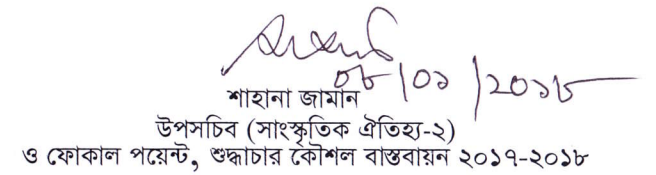 ০৮/০১/২০১৮
শাহানা জামান
উপসচিব (সাংস্কৃতিক ঐতিহ্য-২)
ও ফোকাল পয়েন্ট, শুদ্ধাচার কৌশল বাস্তবায়ন ২০১৭-২০১৮